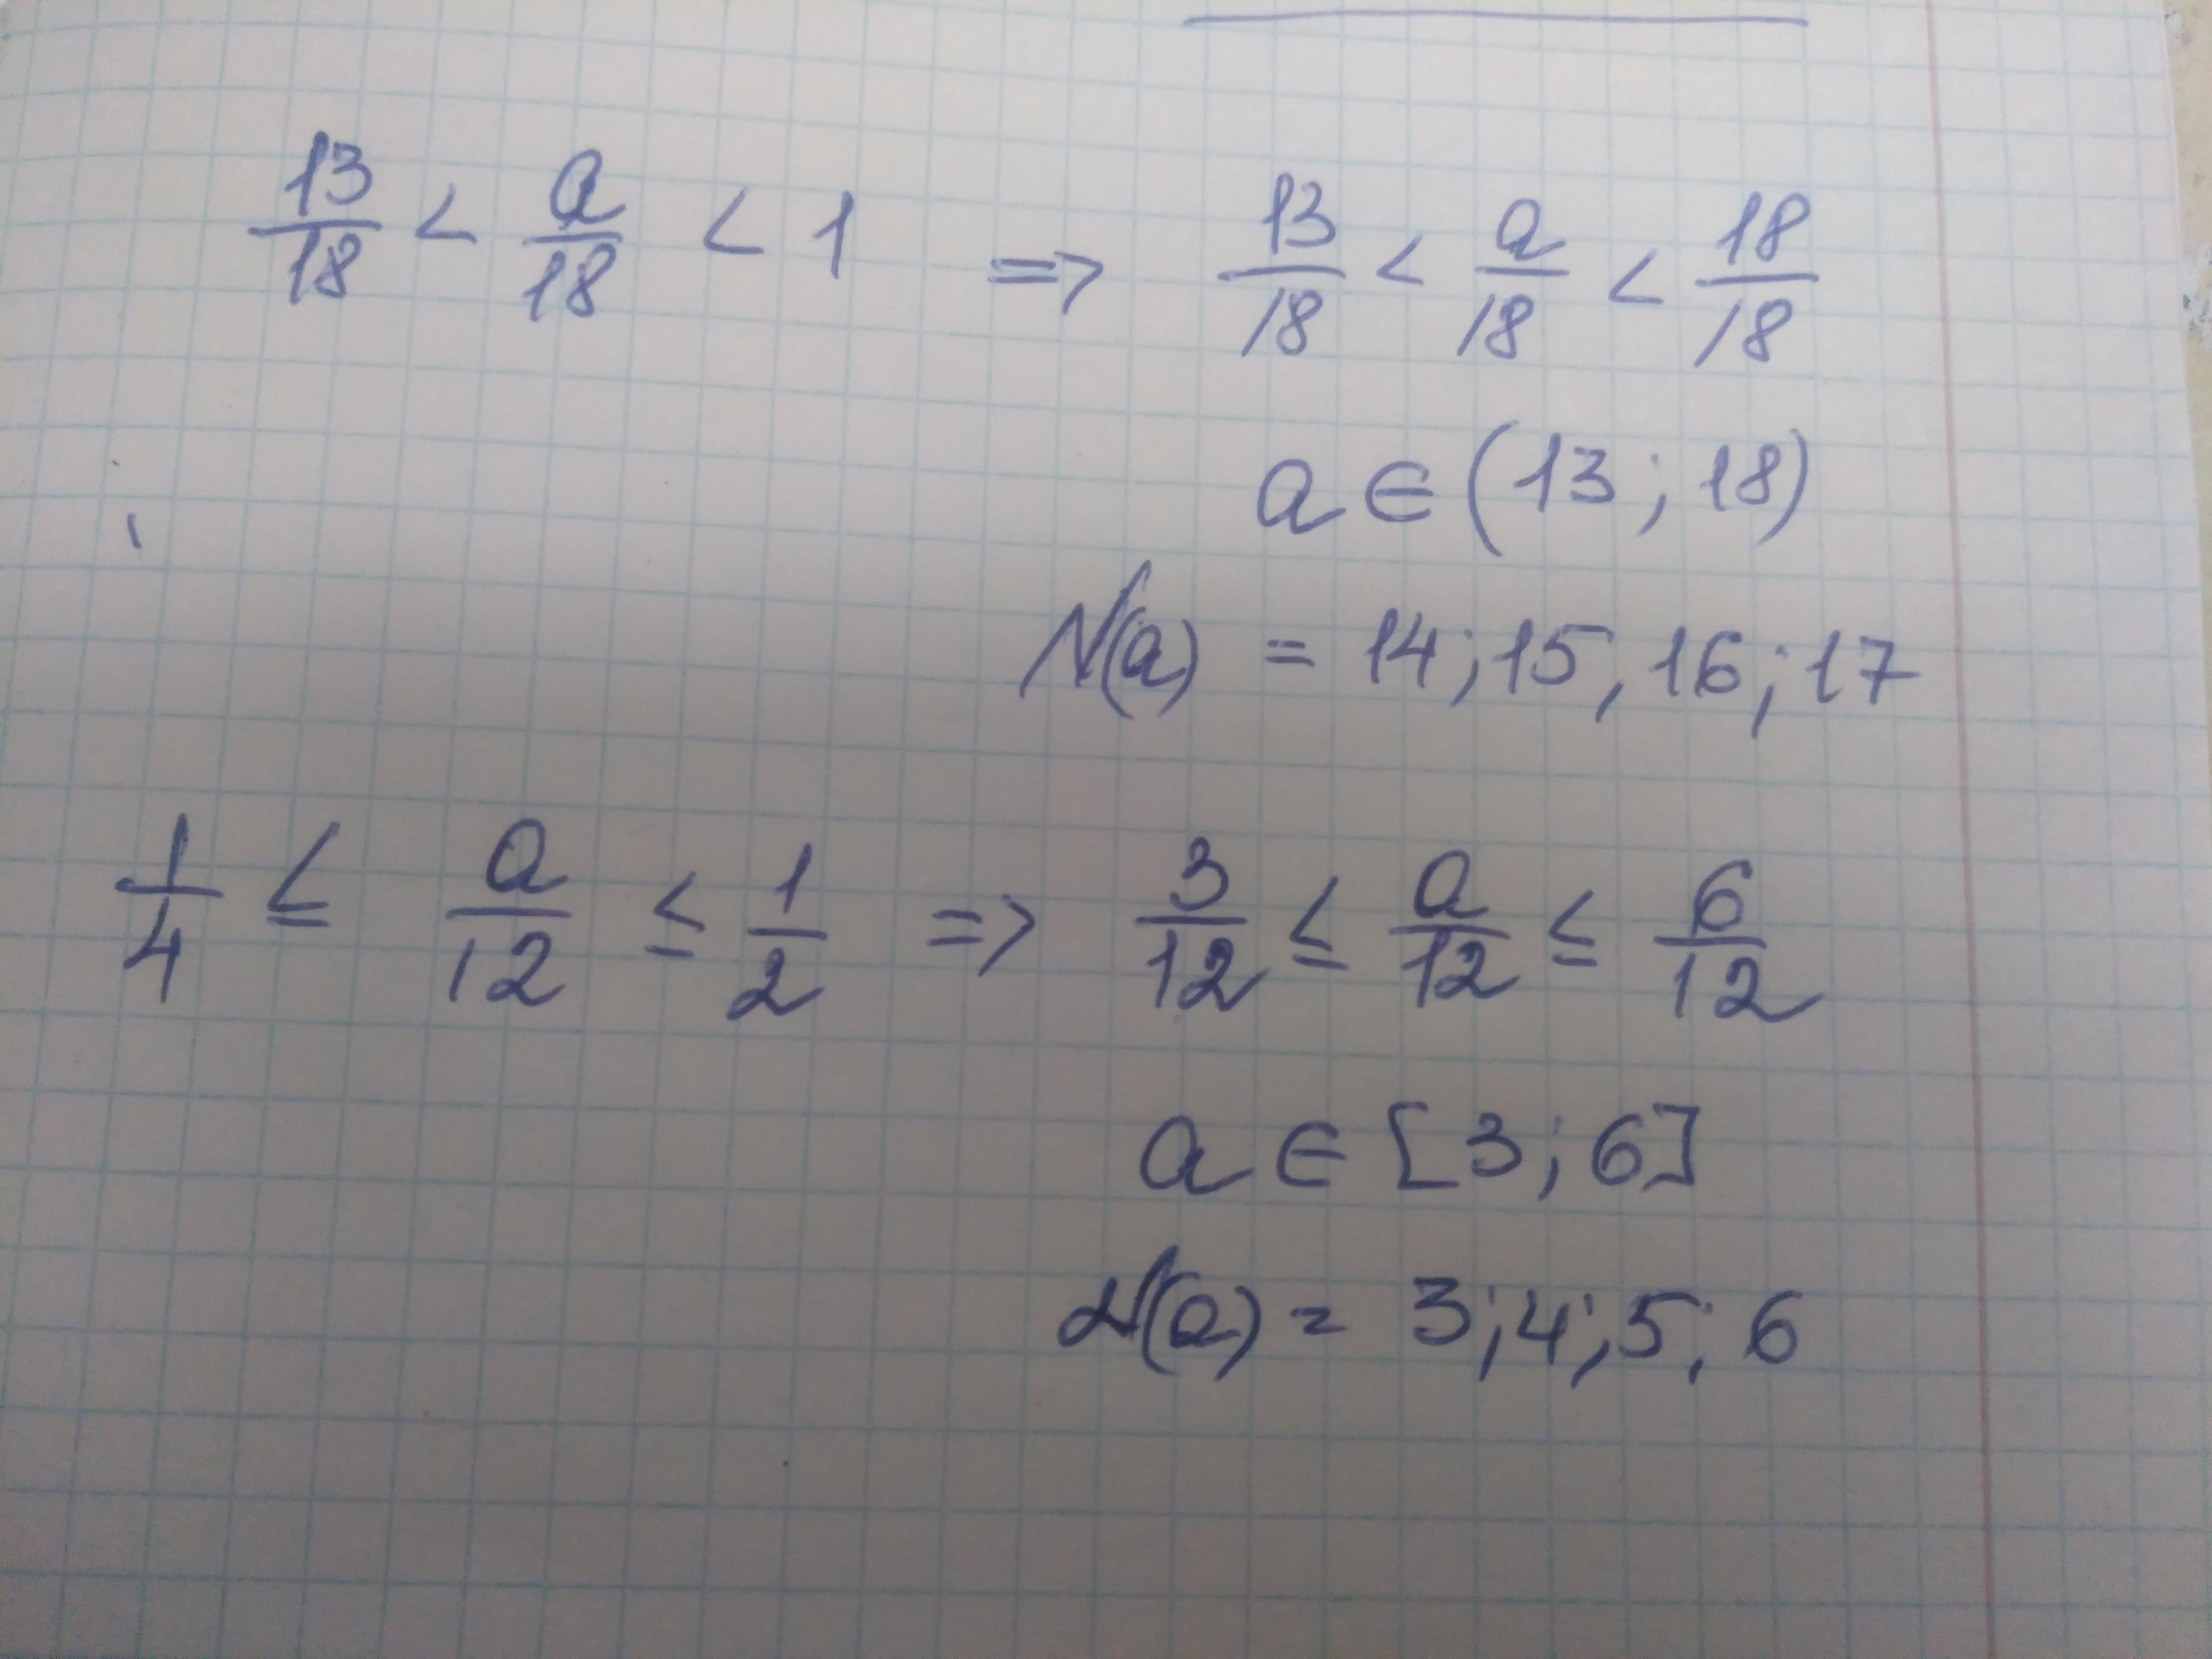 13/18 < a/18 < 1 => 13/18 < a/18 < 18/18
a ∈ (13; 18)
N(a) = 14; 15, 16; 17
1/4 ≤ a/12 ≤ 1/2 => 3/12 ≤ a/12 ≤ 6/12
a ∈ [3; 6]
N(a) = 3; 4; 5; 6